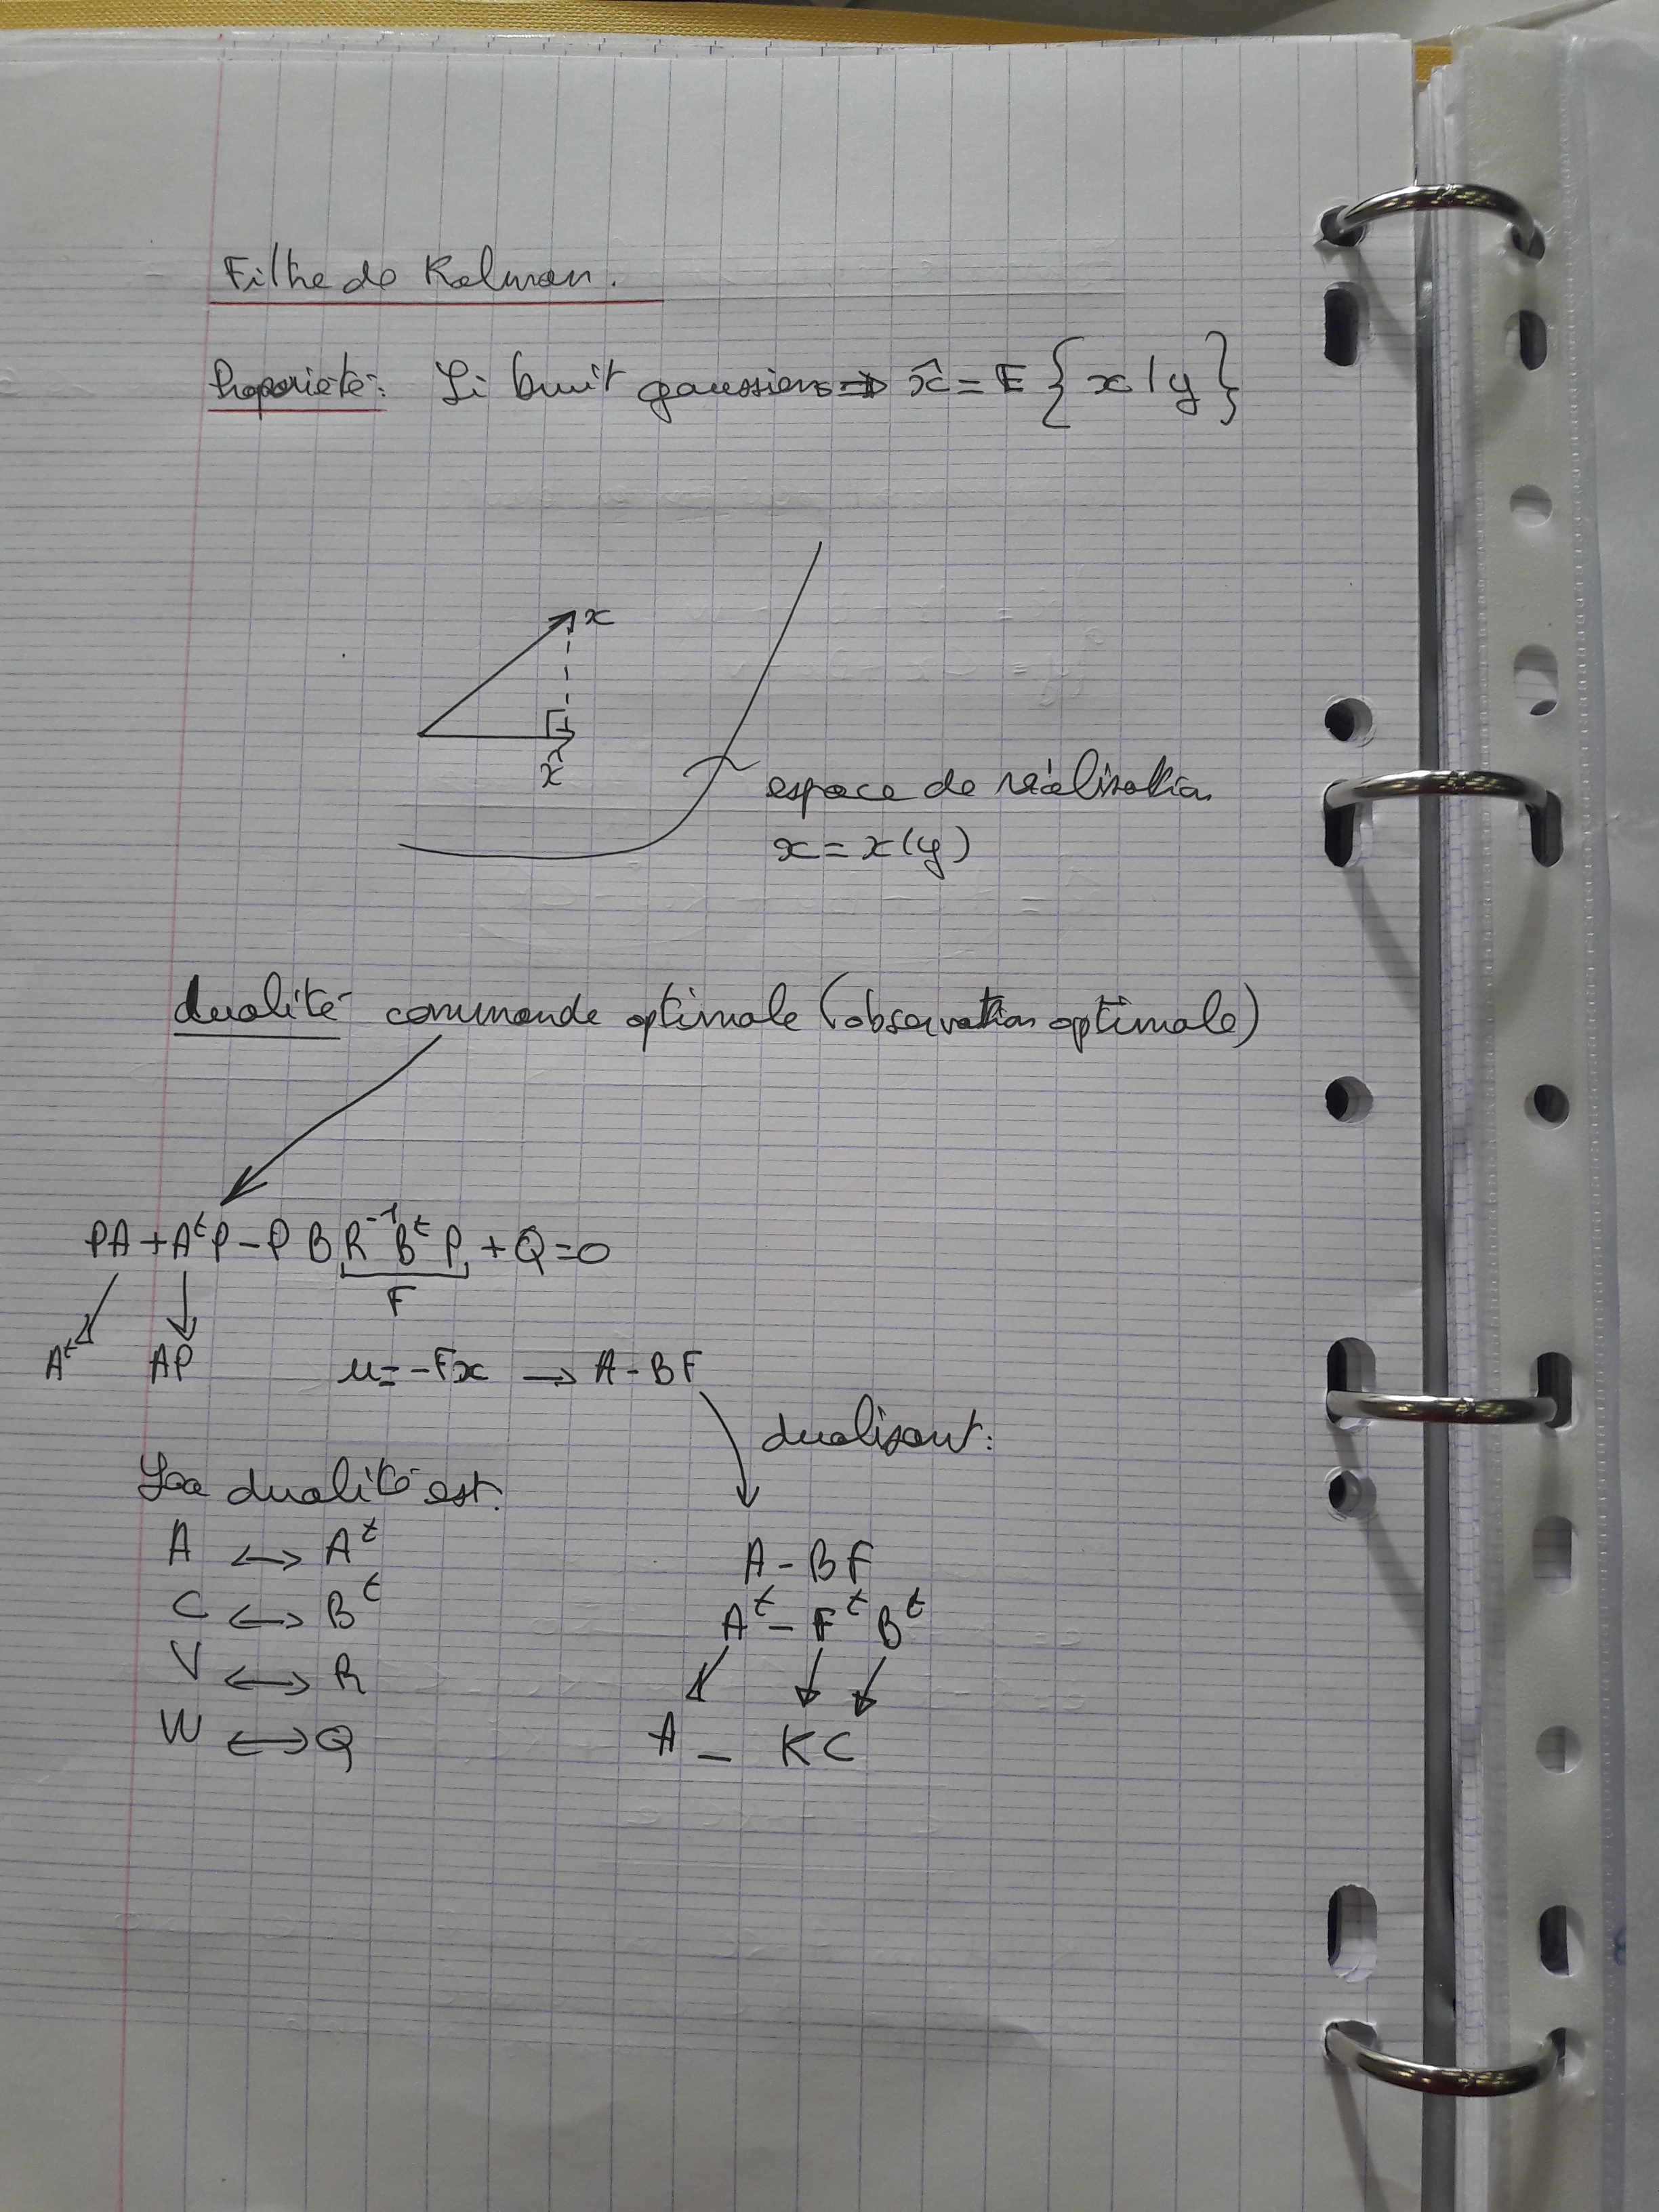 Filtre de Kalman.
Propriété: Si bruit gaussiens ⇒ x̂ = E { x | y }
x
x̂
espace de réalisation
x = x(y)
dualité commande optimale (observation optimale)
PA + AᵗP - P B R⁻¹ Bᵗ P + Q = 0
F
Aᵗ AP u = -Fx → A - BF
dualisant:
La dualité est.
A ↔ Aᵗ
C ↔ Bᵗ
V ↔ R
W ↔ Q
A - B F
Aᵗ - Fᵗ Bᵗ
A - K C